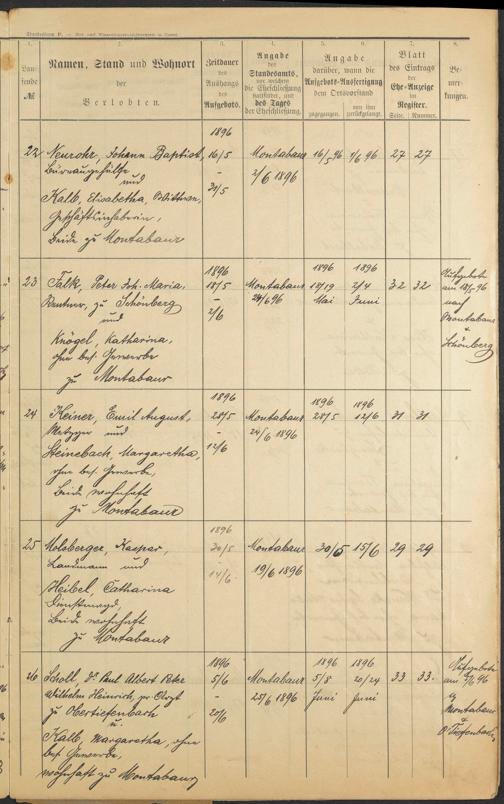 1.
2.
3.
4.
5.
6.
7.
8.
Lau-
fende
№
Namen, Stand und Wohnort
der
Verlobten.
Zeitdauer
des
Aushangs
des
Aufgebots.
Angabe
des
Standesamts,
vor welchem
die Eheschließung
stattfindet, und
des Tages
der Eheschließung.
Angabe
darüber, wann die
Aufgebots-Ausfertigung
dem Ortsvorstand
zugegangen.
von ihm
zurückgelangt.
Blatt
des Eintrags
der
Ehe-Anzeige
im
Register.
Seite.
Nummer.
Be-
mer-
kungen.
1896
22 Neurohr, Johann Baptist, 16/5 Montabaur 16/5 96 1/6 96 27 27
Bureaugehülfe - 2/6 1896
und
Kalb, Elisabetha, Wittwe, 30/5
Geschäftsinhaberin,
beide zu Montabaur
1896 1896 1896 Aufgebote
23 Falk, Peter Joh. Maria, 18/5 Montabaur 18/19 2/4 32 32 am 18/5 96
Rentner, zu Schönberg - 24/6 96 Mai Juni nach
und 2/6 Montabaur
Knögel, Katharina, Schönberg
ohne bes. Gewerbe
zu Montabaur
1896 1896 1896
24 Heiner, Emil August, 28/5 Montabaur 28/5 12/6 31 31
Metzger und - 24/6 1896
Steinebach, Margaretha, 12/6
ohne bes. Gewerbe,
beide wohnhaft
zu Montabaur
1896
25 Molsberger, Kaspar, 30/5 Montabaur 30/5 15/6 29 29
Landmann und - 19/6 1896
Heibel, Catharina 14/6
Dienstmagd,
beide wohnhaft
zu Montabaur
1896 1896 1896 Aufgebote
26 Scholl, Dr Paul Albert Peter 5/6 Montabaur 5/8 20/24 33 33. am 5/6 96
Wilhelm Heinrich, pr. Arzt - 25/6 1896 Juni Juni
zu Obertiefenbach 20/6 Montabaur
u.
Kalb, Margaretha, ohne O'Tiefenbach
bes. Gewerbe,
wohnhaft zu Montabaur